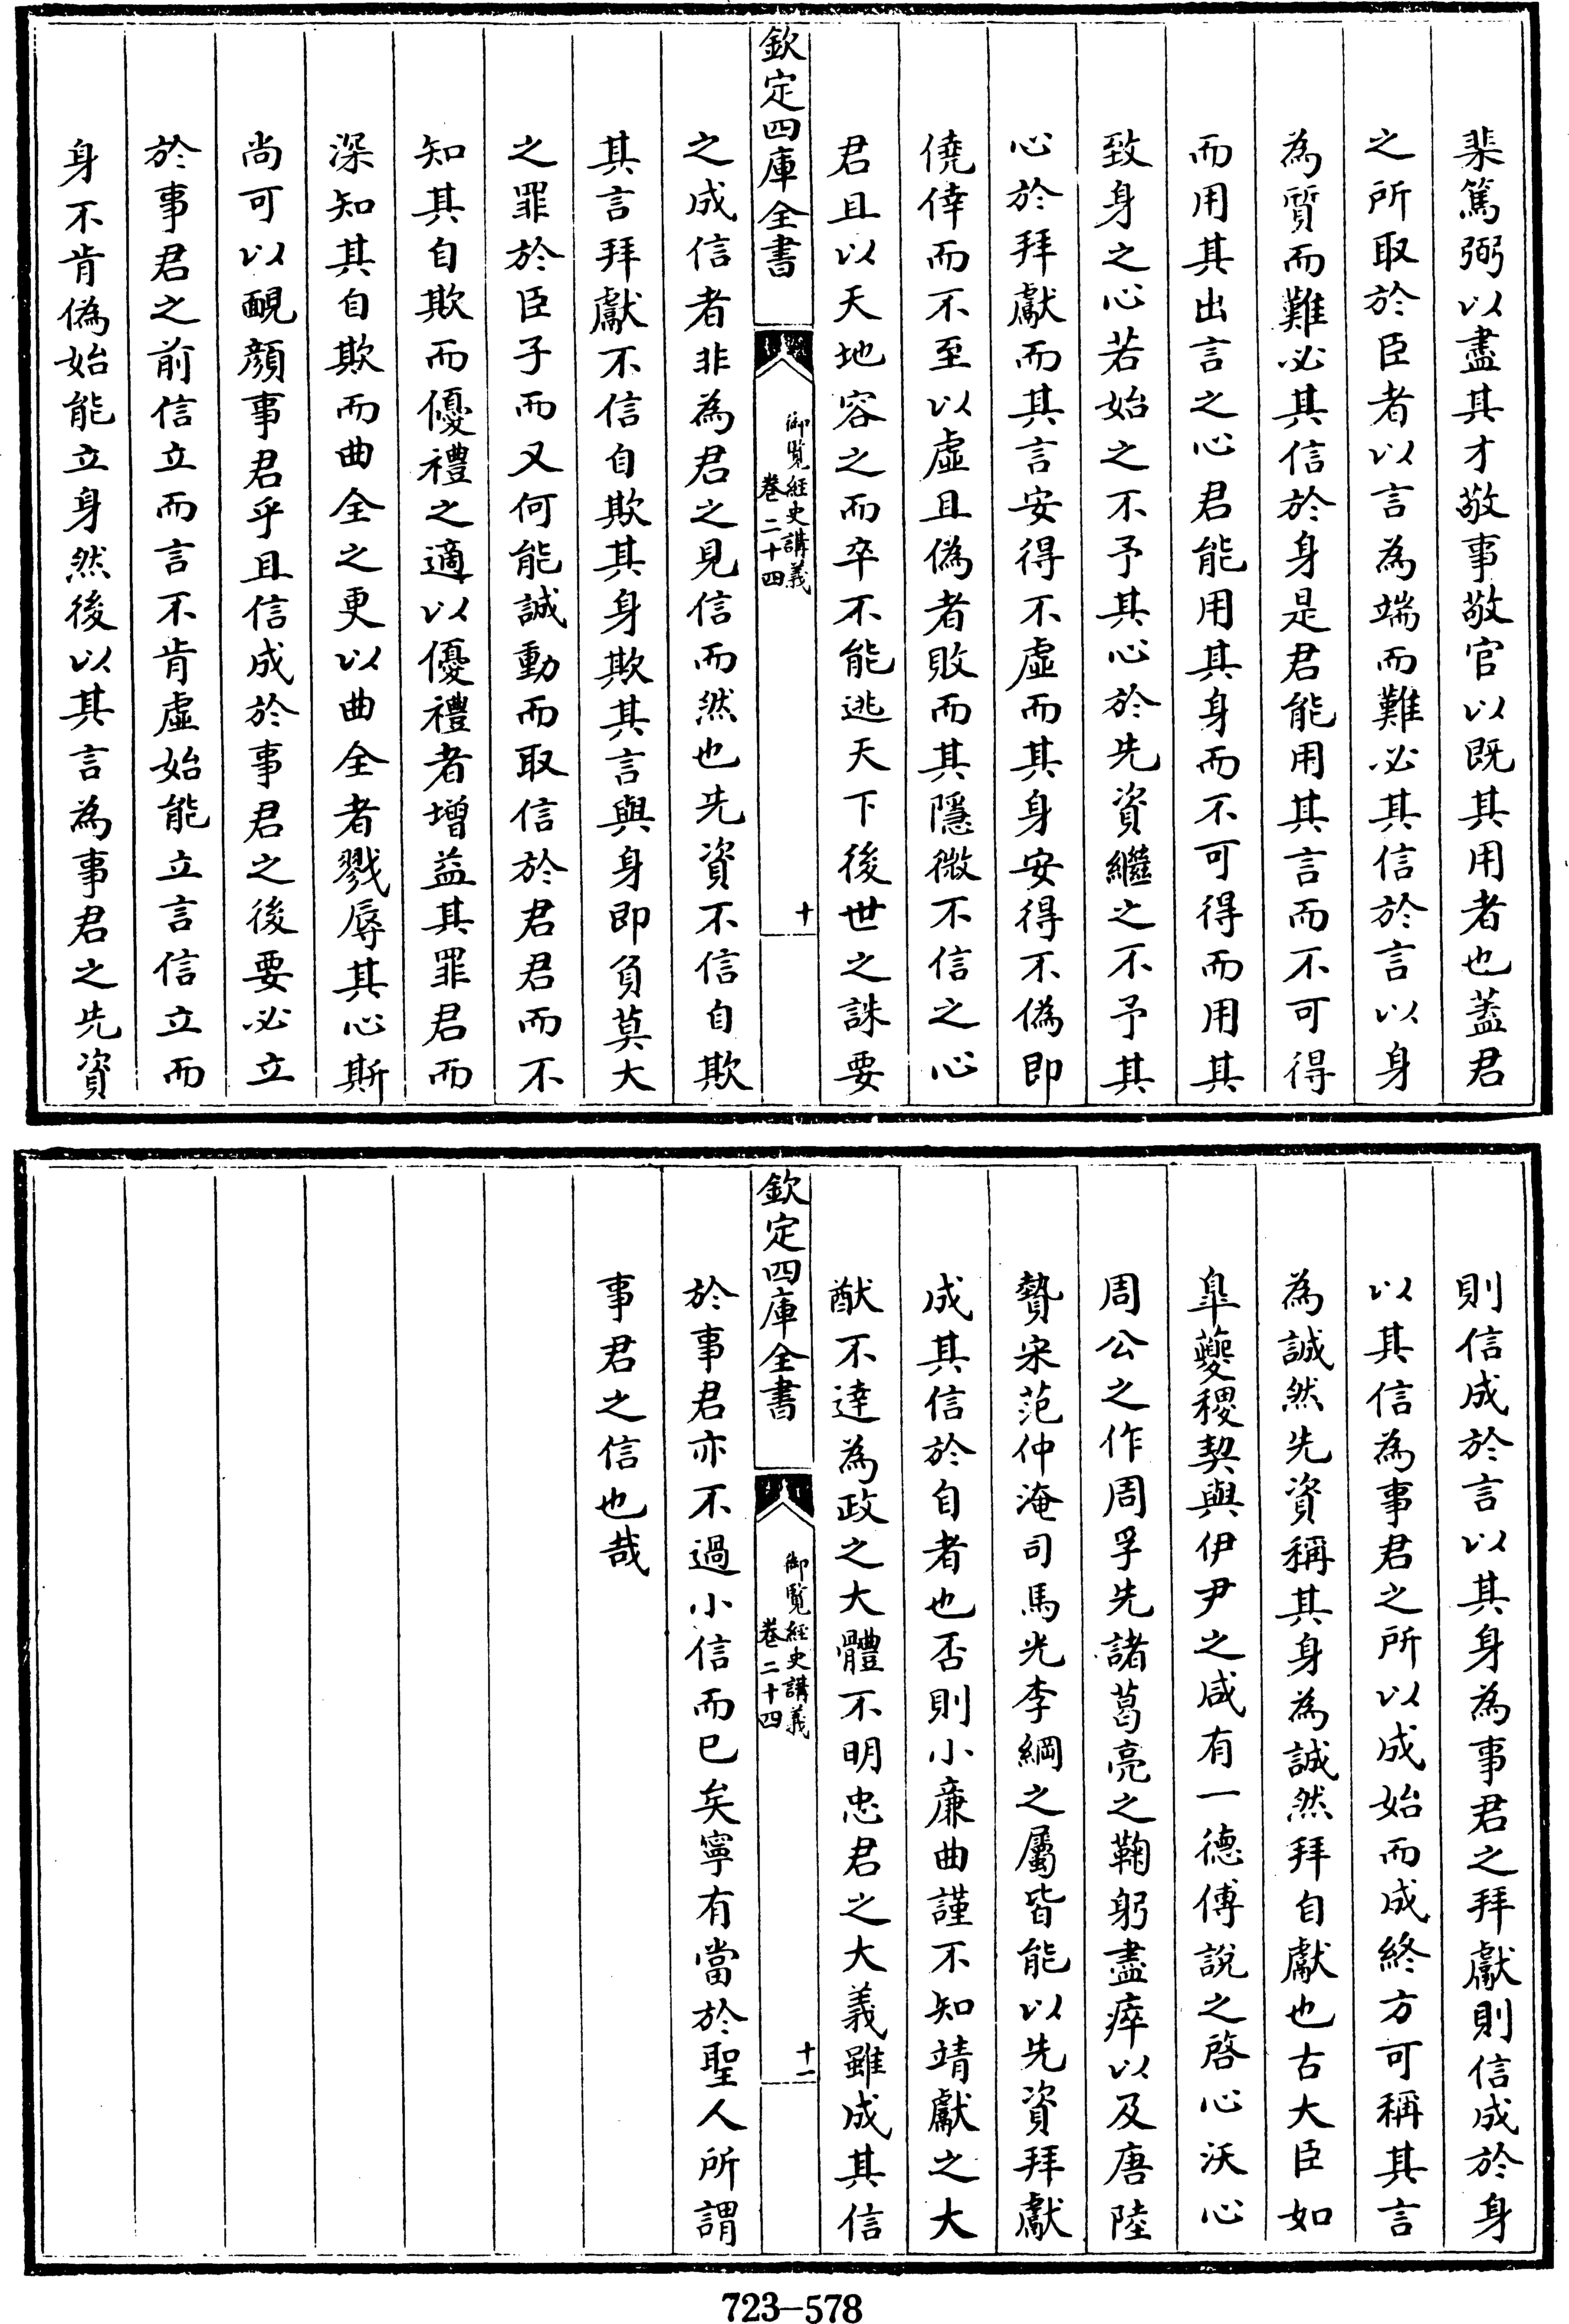 棐篤弼以盡其才敬事敬官以既其用者也蓋君
之所取於臣者以言為端而難必其信於言以身
為質而難必其信於身是君能用其言而不可得
而用其出言之心君能用其身而不可得而用其
致身之心若始之不予其心於先資繼之不予其
心於拜獻而其言安得不虛而其身安得不偽即
僥倖而不至以虛且偽者敗而其隱微不信之心
君且以天地容之而卒不能逃天下後世之誅要
欽定四庫全書
御覽經史講義
卷二十四
十
之成信者非為君之見信而然也先資不信自欺
其言拜獻不信自欺其身欺其言與身即負莫大
之罪於臣子而又何能誠動而取信於君君而不
知其自欺而優禮之適以優禮者增益其罪君而
深知其自欺而曲全之更以曲全者戮辱其心斯
尚可以靦顏事君乎且信成於事君之後要必立
於事君之前信立而言不肯虛始能立言信立而
身不肯偽始能立身然後以其言為事君之先資
則信成於言以其身為事君之拜獻則信成於身
以其信為事君之所以成始而成終方可稱其言
為誠然先資稱其身為誠然拜自獻也古大臣如
臯夔稷契與伊尹之咸有一德傅說之啓心沃心
周公之作周孚先諸葛亮之鞠躬盡瘁以及唐陸
贄宋范仲淹司馬光李綱之屬皆能以先資拜獻
成其信於自者也否則小廉曲謹不知靖獻之大
猷不達為政之大體不明忠君之大義雖成其信
欽定四庫全書
御覽經史講義
卷二十四
十一
於事君亦不過小信而已矣寧有當於聖人所謂
事君之信也哉
723-578